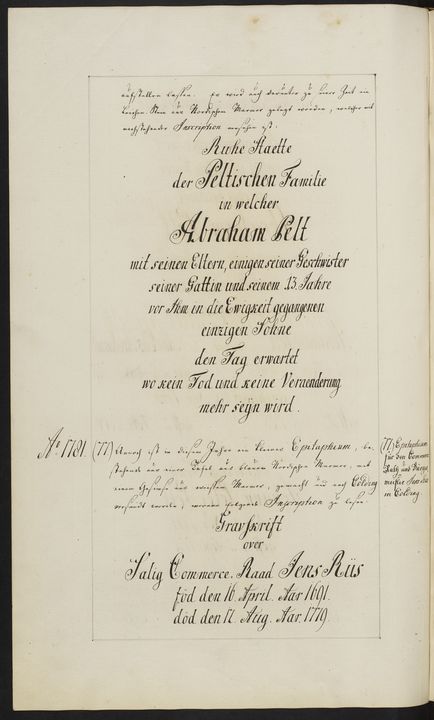 aufstellen lassen. Es wird auch darunter zu seiner Zeit ein
Leichen-Stein aus Nordischen Marmor gelegt werden, welcher mit
nachstehender Inscription versehen ist:
Ruhe Staette
der Peltischen Familie
in welcher
Abraham Pelt
mit seinen Eltern, einigen seiner Geschwister
seiner Gattin und seinem 13. Jahre
vor Ihm in die Ewigkeit gegangenen
einzigen Sohne
den Tag erwartet
wo kein Tod und keine Veraenderung
mehr seÿn wird.
Aº 1781.
(77) Annoch ist in diesem Jahre ein kleines Epitaphium, be-
stehend aus einer Tafel aus blauen Nordischen Marmor, mit
einem Gesimse aus weissen Marmor, gemacht und nach Colding
versandt worden, worauf folgende Inscription zu lesen:
(77) Epitaphium
für den Commerc
Rath und Bürge
meister Jens Riis
in Colding
Gravskrift
over
Salig Commerce. Raad Jens Riis
föd den 16 April. Aar 1691.
död den 17. Aug. Aar. 1779.